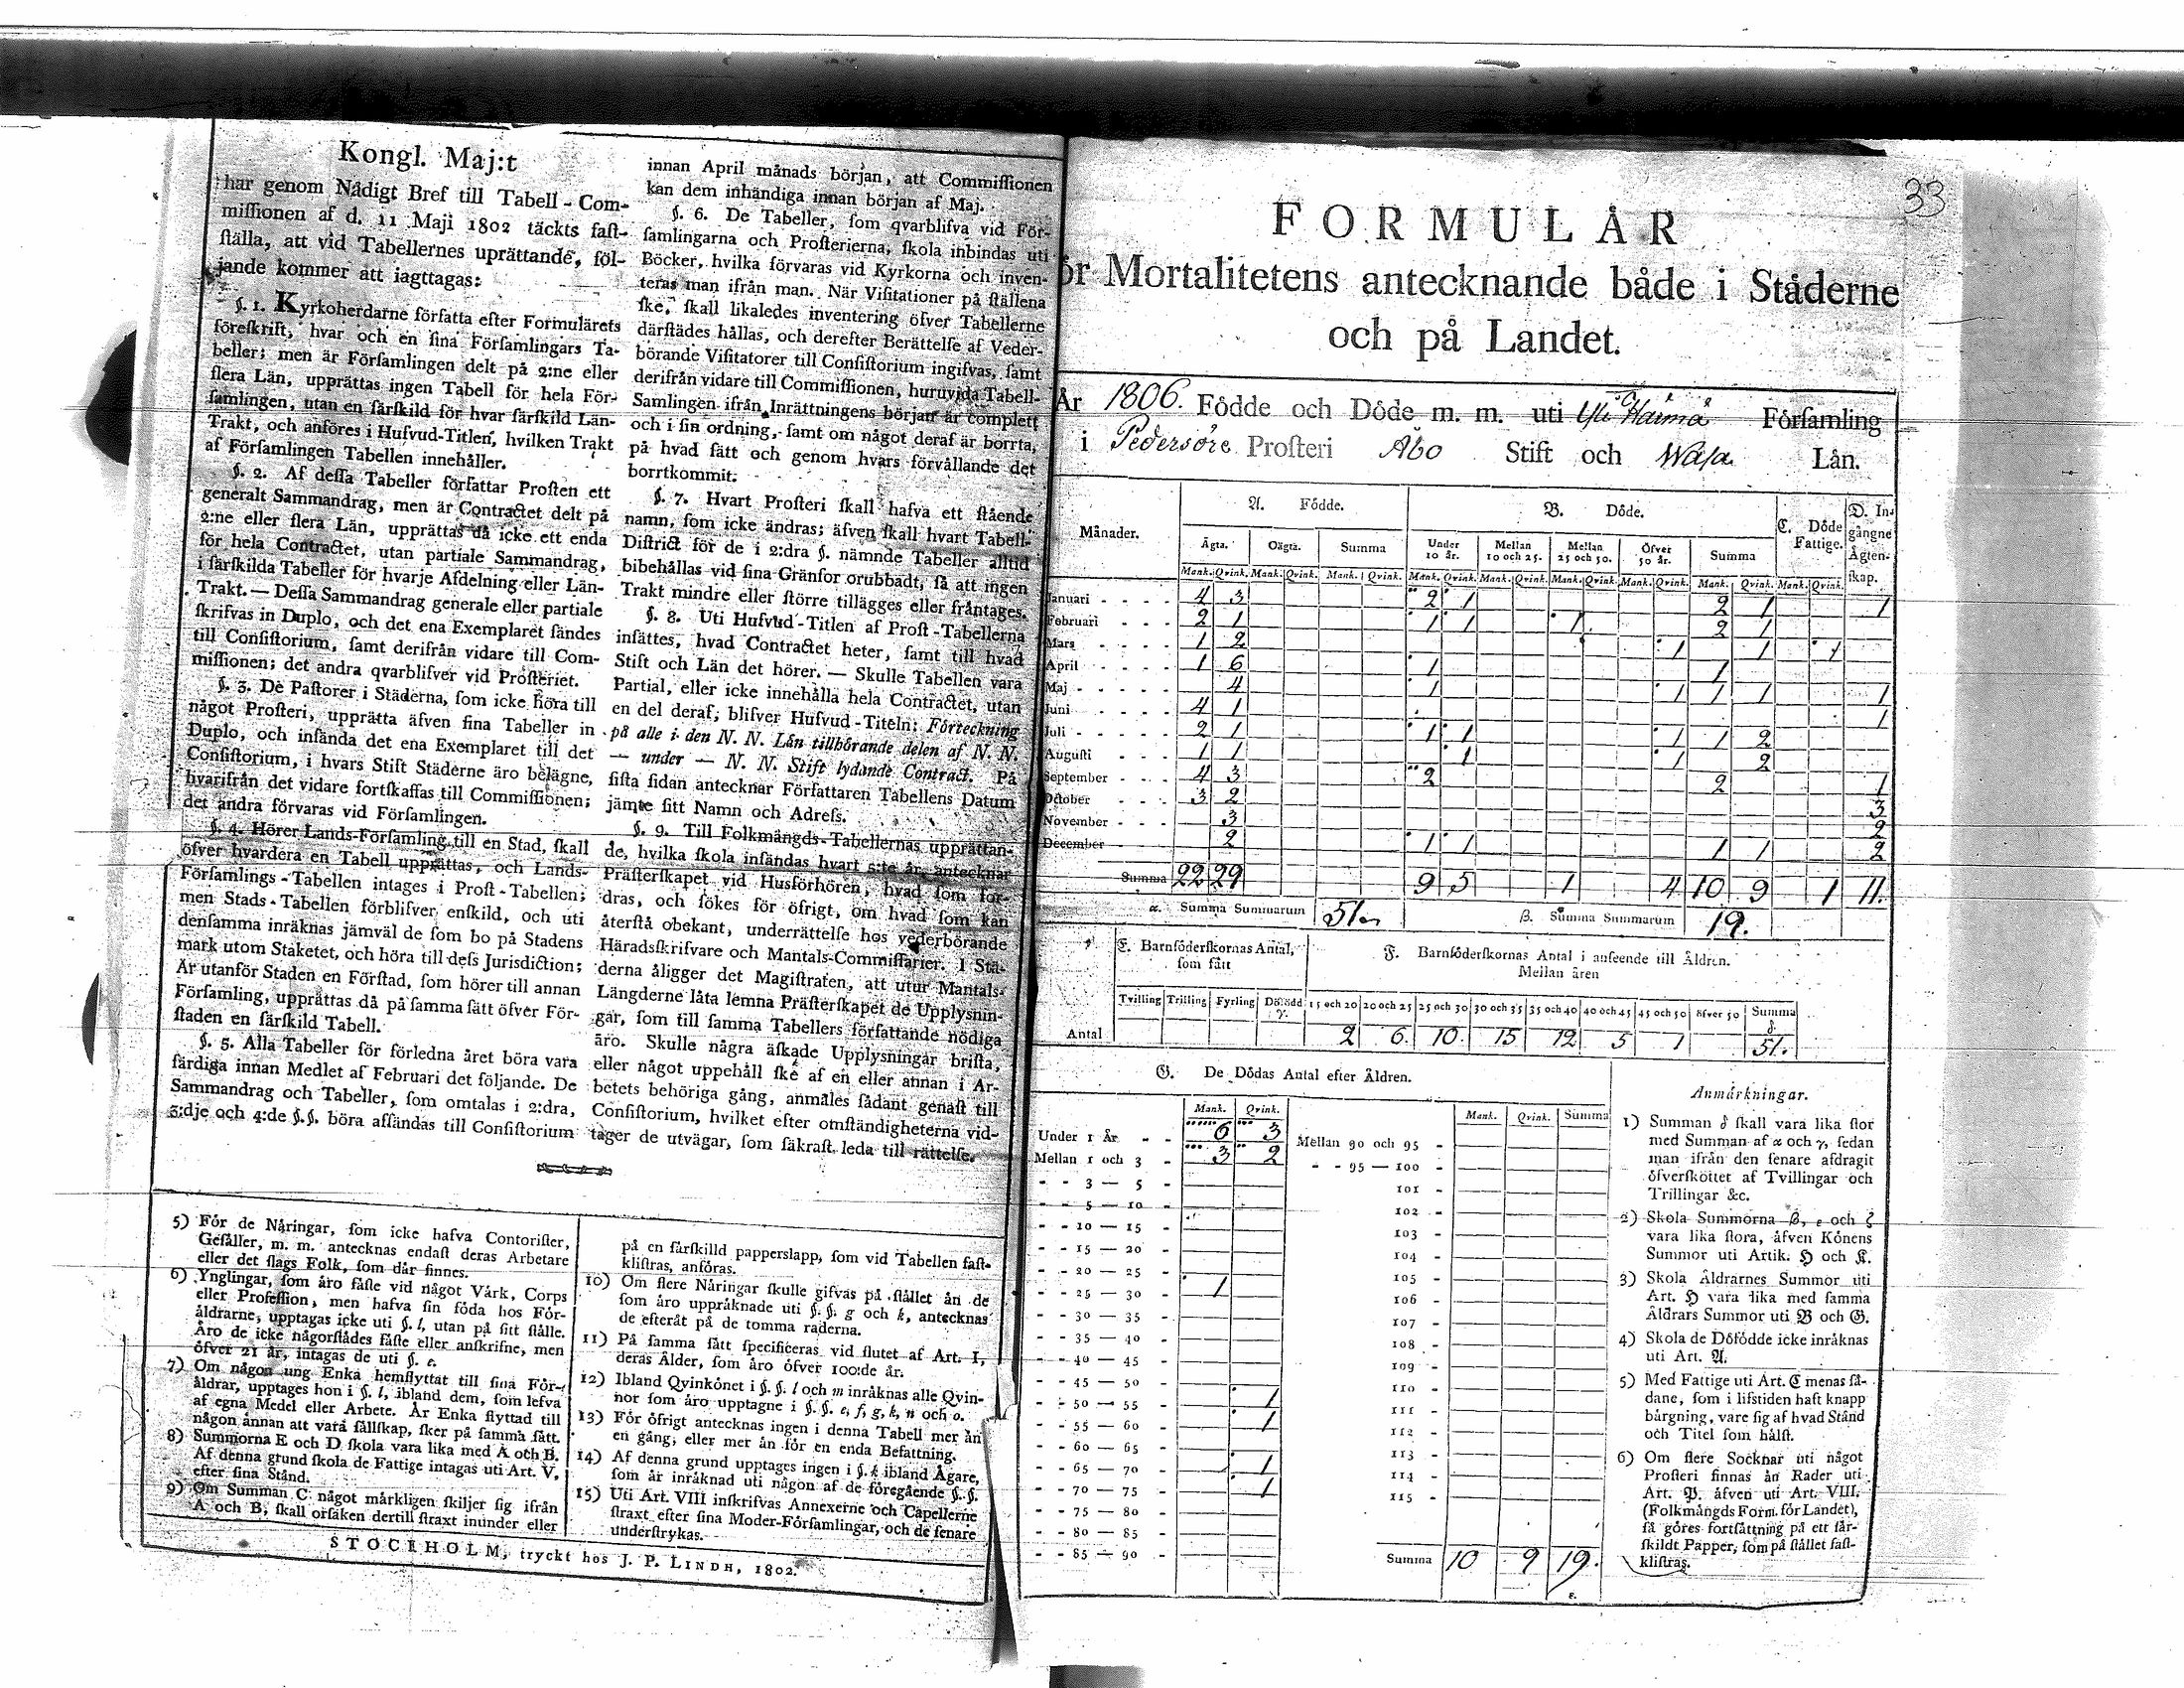 Kongl. Maj:t
har genom Nådigt Bref till Tabell-Com-
missionen af d. 11 Maji 1802 täckts fast-
ställa, att vid Tabellernes uprättande, föl-
jande kommer att iagttagas:
§. 1. Kyrkoherdarne författa efter Formulärets
föreskrift, hvar och en sina Församlingars Ta-
beller; men är Församlingen delt på 2:ne eller
flera Län, upprättas ingen Tabell för hela För-
samlingen, utan en särskild för hvar särskild Län-
Trakt, och anföres i Hufvud-Titlen, hvilken Trakt
af Församlingen Tabellen innehåller.
§. 2. Af dessa Tabeller författar Prosten ett
generalt Sammandrag, men är Contractet delt på
2:ne eller flera Län, upprättas då icke ett enda
för hela Contractet, utan partiale Sammandrag,
i särskilda Tabeller för hvarje Afdelning eller Län-
Trakt. — Dessa Sammandrag generale eller partiale
skrifvas in Duplo, och det ena Exemplaret sändes
till Consistorium, samt derifrån vidare till Com-
missionen; det andra qvarblifver vid Prosteriet.
§. 3. De Pastorer i Städerna, som icke höra till
något Prosteri, upprätta äfven sina Tabeller in
Duplo, och insända det ena Exemplaret till det
Consistorium, i hvars Stift Städerne äro belägne,
hvarifrån det vidare fortskaffas till Commissionen;
det andra förvaras vid Församlingen.
§. 4. Hörer Lands-Församling till en Stad, skall
öfver hvardera en Tabell upprättas, och Lands-
Församlings-Tabellen intages i Prost-Tabellen;
men Stads-Tabellen förblifver enskild, och uti
densamma inräknas jämväl de som bo på Stadens
mark utom Staketet, och höra till dess Jurisdiction;
Är utanför Staden en Förstad, som hörer till annan
Församling, upprättas då på samma sätt öfver För-
staden en särskild Tabell.
§. 5. Alla Tabeller för förledna året böra vara
färdiga innan Medlet af Februari det följande. De
Sammandrag och Tabeller, som omtalas i 2:dra,
3:dje och 4:de §.§. böra afsändas till Consistorium
innan April månads början, att Commissionen
kan dem inhändiga innan början af Maj.
§. 6. De Tabeller, som qvarblifva vid För-
samlingarna och Prosterierna, skola inbindas uti
Böcker, hvilka förvaras vid Kyrkorna och inven-
teras man ifrån man. När Visitationer på ställena
ske, skall likaledes inventering öfver Tabellerne
därstädes hållas, och derefter Berättelse af Veder-
börande Visitatorer till Consistorium ingifvas, samt
derifrån vidare till Commissionen, huruvida Tabell-
Samlingen ifrån Inrättningens början är complett
och i sin ordning, samt om något deraf är borrta,
på hvad sätt och genom hvars förvållande det
borrtkommit.
§. 7. Hvart Prosteri skall hafva ett stående
namn, som icke ändras; äfven skall hvart Tabell-
District för de i 2:dra §. nämnde Tabeller alltid
bibehållas vid sina Gränsor orubbadt, så att ingen
Trakt mindre eller större tillägges eller fråntages.
§. 8. Uti Hufvud-Titlen af Prost-Tabellerna
insättes, hvad Contractet heter, samt till hvad
Stift och Län det hörer. — Skulle Tabellen vara
Partial, eller icke innehålla hela Contractet, utan
en del deraf; blifver Hufvud-Titeln: Förteckning
på alle i den N. N. Län tillhörande delen af N. N.
— under — N. N. Stift lydande Contract. På
sista sidan antecknar Författaren Tabellens Datum
jämte sitt Namn och Adress.
§. 9. Till Folkmängds-Tabellernas upprättan-
de, hvilka skola insändas hvart 5:te år, antecknar
Prästerskapet vid Husförhören, hvad som for-
dras, och sökes för öfrigt, om hvad som kan
återstå obekant, underrättelse hos vederbörande
Häradsskrifvare och Mantals-Commissarier. I Stä-
derna åligger det Magistraten, att utur Mantals-
Längderne låta lemna Prästerskapet de Upplysnin-
gar, som till samma Tabellers författande nödiga
äro. Skulle några äskade Upplysningar brista,
eller något uppehåll ske af en eller annan i Ar-
betets behöriga gång, anmäles sådant genast till
Consistorium, hvilket efter omständigheterna vid-
tager de utvägar, som säkrast leda till rättelse.
5) För de Näringar, som icke hafva Contorister,
Gesäller, m. m. antecknas endast deras Arbetare
eller det slags Folk, som där finnes.
6) Ynglingar, som äro fäste vid något Värk, Corps
eller Profession, men hafva sin föda hos För-
äldrarne, upptagas icke uti §. l, utan på sitt ställe.
Äro de icke någorstädes fäste eller anskrifne, men
öfver 21 år, intagas de uti §. e.
7) Om någon ung Enka hemflyttat till sina För-
äldrar, upptages hon i §. l, ibland dem, som lefva
af egna Medel eller Arbete. Är Enka flyttad till
någon annan att vara sällskap, sker på samma sätt.
8) Summorna E och D skola vara lika med A och B.
Af denna grund skola de Fattige intagas uti Art. V,
efter sina Stånd.
9) Om Summan C något märkligen skiljer sig ifrån
A och B, skall orsaken dertill straxt inunder eller
på en särskilld papperslapp, som vid Tabellen fast-
klistras, anföras.
10) Om flere Näringar skulle gifvas på stället än de
som äro uppräknade uti §. §. g och k, antecknas
de efteråt på de tomma raderna.
11) På samma sätt specificeras vid slutet af Art. I,
deras Ålder, som äro öfver 100:de år.
12) Ibland Qvinkönet i §. §. l och m inräknas alle Qvin-
nor som äro upptagne i §. §. e, f, g, k, n och o.
13) För öfrigt antecknas ingen i denna Tabell mer än
en gång, eller mer än för en enda Befattning.
14) Af denna grund upptages ingen i §. k ibland Ägare,
som är inräknad uti någon af de föregående §. §.
15) Uti Art. VIII inskrifvas Annexerne och Capellerne
straxt efter sina Moder-Församlingar, och de senare
understrykas.
STOCKHOLM, tryckt hos J. P. LINDH, 1802.
33
FORMULÄR
ör Mortalitetens antecknande både i Städerne
och på Landet.
År 1806. Födde och Döde m. m. uti Församling
i Pedersöre Prosteri Åbo Stift och Wasa Län.
Månader. A. Födde. B. Döde. C. Döde Fattige. D. Ingångne Ägtenskap.
Ägta. Oägta. Summa Under 10 år. Mellan 10 och 25. Mellan 25 och 50. Öfver 50 år. Summa
Mank. Qvink. Mank. Qvink. Mank. Qvink. Mank. Qvink. Mank. Qvink. Mank. Qvink. Mank. Qvink. Mank. Qvink. Mank. Qvink.
Januari 4 3 2 1 2 1 1
Februari 2 1 1 1 1 2 1
Mars 1 2 1 1 1
April 1 6 1 1
Maj 4 1 1 1 1 1
Juni 4 1 1
Juli 2 1 1 1 1 1 2
Augusti 1 1 1 1 2
September 4 3 2 2 1
October 3 2 3
November 3 2
December 2 1 1 1 1 2
Summa 22 29 9 5 1 4 10 9 1 11.
α. Summa Summarum 51 β. Summa Summarum 19.
E. Barnföderskornas Antal, som fått
F. Barnföderskornas Antal i anseende till Åldren.
Mellan åren
Tvilling Trilling Fyrling Dödfödd γ. 15 och 20 20 och 25 25 och 30 30 och 35 35 och 40 40 och 45 45 och 50 öfver 50 Summa δ.
Antal 2 6. 10. 15 12 5 1 51.
G. De Dödas Antal efter Åldren.
Mank. Qvink. Mank. Qvink. Summa
Under 1 År 6 3 Mellan 90 och 95
Mellan 1 och 3 3 2 95 — 100
3 — 5 101
5 — 10 102
10 — 15 103
15 — 20 104
20 — 25 105
25 — 30 1 106
30 — 35 107
35 — 40 108
40 — 45 109
45 — 50 110
50 — 55 1 111
55 — 60 1 112
60 — 65 113
65 — 70 1 114
70 — 75 1 115
75 — 80
80 — 85
85 — 90 Summa 10 9 19.
ε.
Anmärkningar.
1) Summan δ skall vara lika stor
med Summan af α och γ, sedan
man ifrån den senare afdragit
öfverskottet af Tvillingar och
Trillingar &c.
2) Skola Summorna β, ε och ζ
vara lika stora, äfven Könens
Summor uti Artik. H och K.
3) Skola Åldrarnes Summor uti
Art. H vara lika med samma
Åldrars Summor uti B och G.
4) Skola de Döfödde icke inräknas
uti Art. A.
5) Med Fattige uti Art. C menas så-
dane, som i lifstiden haft knapp
bärgning, vare sig af hvad Stånd
och Titel som hälst.
6) Om flere Socknar uti något
Prosteri finnas än Rader uti
Art. B. äfven uti Art. VIII.
(Folkmängds Form. för Landet),
så göres fortsättning på ett sär-
skildt Papper, som på stället fast-
klistras.